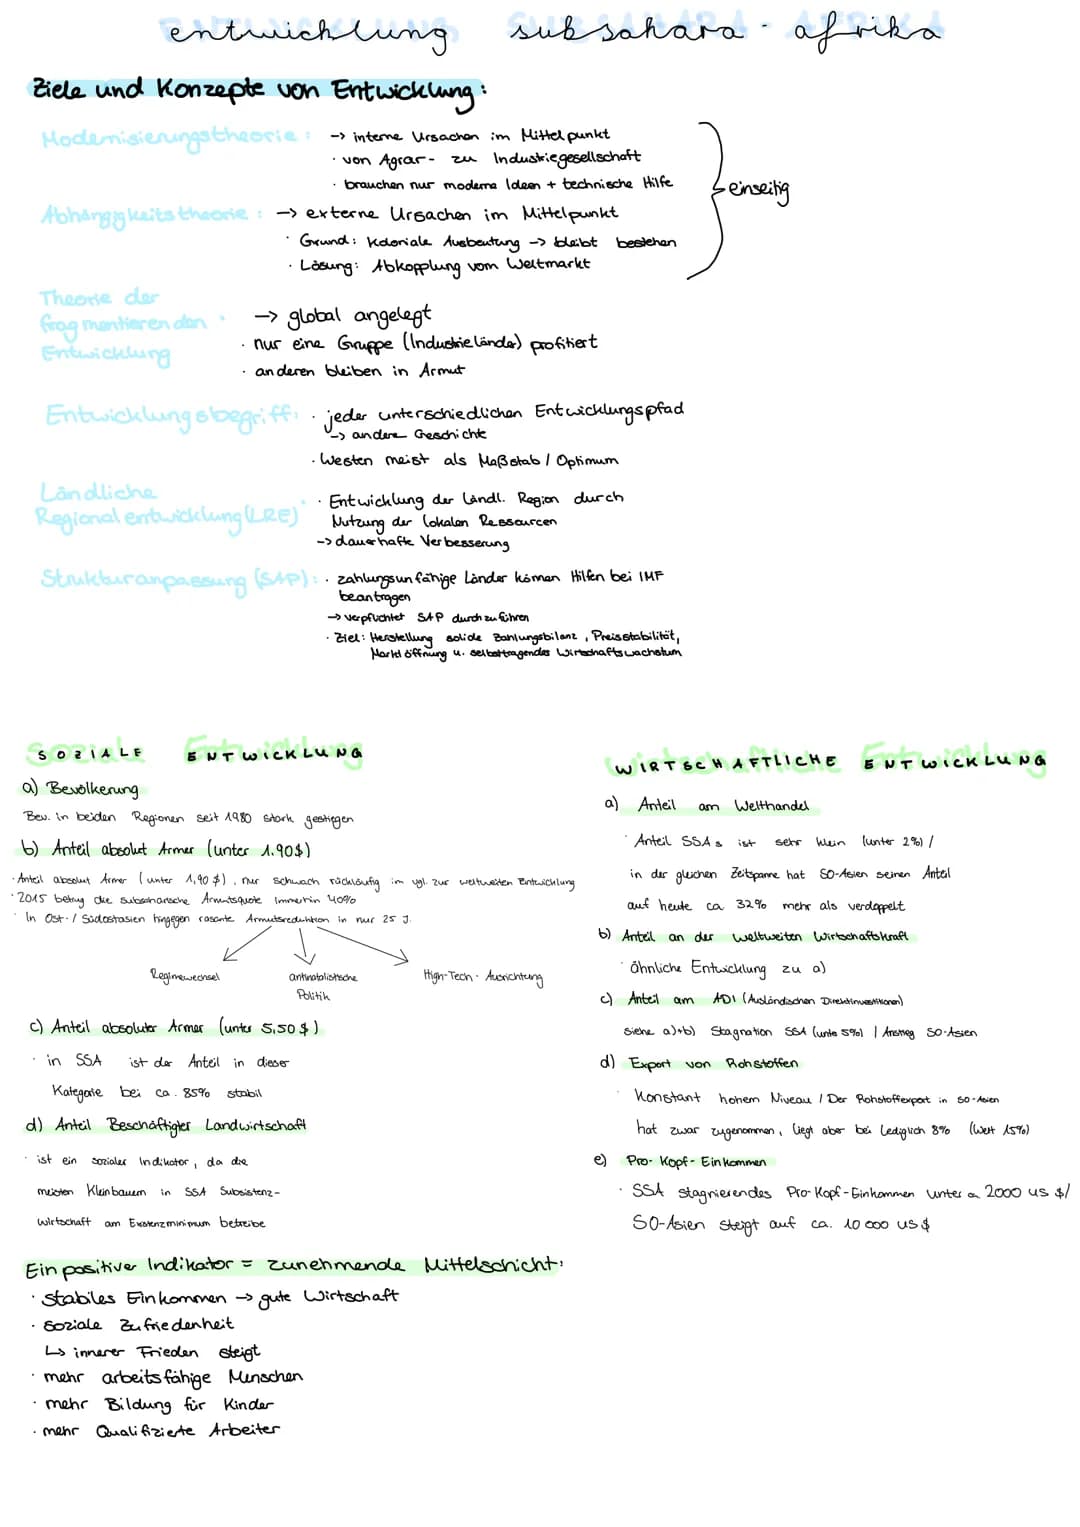 entwicklung subsahara - afrika
Ziele und Konzepte von Entwicklung:
Modernisierungstheorie: -> interne Ursachen im Mittelpunkt
· von Agrar- zu Industriegesellschaft
· brauchen nur moderne Ideen + technische Hilfe
einseitig
Abhängigkeitstheorie: -> externe Ursachen im Mittelpunkt
· Grund: koloniale Ausbeutung -> bleibt bestehen
· Lösung: Abkopplung vom Weltmarkt
Theorie der
fragmentierenden
Entwicklung
-> global angelegt
· nur eine Gruppe (Industrieländer) profitiert
· anderen bleiben in Armut
Entwicklungsbegriff: · jeder unterschiedlichen Entwicklungspfad
-> andere Geschichte
· Westen meist als Maßstab / Optimum
Ländliche
Regionalentwicklung (LRE)
· Entwicklung der ländl. Region durch
Nutzung der lokalen Ressourcen
-> dauerhafte Verbesserung
Strukturanpassung (SAP): · zahlungsunfähige Länder können Hilfen bei IMF
beantragen
-> verpflichtet SAP durchzuführen
· Ziel: Herstellung solide Zahlungsbilanz, Preisstabilität,
Marktöffnung u. selbsttragendes Wirtschaftswachstum
SOZIALE ENTWICKLUNG
a) Bevölkerung
Bev. in beiden Regionen seit 1980 stark gestiegen
b) Anteil absolut Armer (unter 1.90$)
· Anteil absolut Armer (unter 1,90 $), nur schwach rückläufig im vgl. zur weltweiten Entwicklung
· 2015 betrug die subsaharische Armutsquote immerhin 40%
· In Ost-/ Südostasien hingegen rasante Armutsreduktion in nur 25 J.
Regimewechsel
antinatalistische
Politik
High-Tech-Ausrichtung
c) Anteil absoluter Armer (unter 5,50 $)
· in SSA ist der Anteil in dieser
Kategorie bei ca. 85% stabil
d) Anteil Beschäftigter Landwirtschaft
· ist ein sozialer Indikator, da die
meisten Kleinbauern in SSA Subsistenz-
wirtschaft am Existenzminimum betreibe
Ein positiver Indikator = zunehmende Mittelschicht:
· stabiles Einkommen -> gute Wirtschaft
· soziale Zufriedenheit
↳ innerer Frieden steigt
· mehr arbeitsfähige Menschen
· mehr Bildung für Kinder
· mehr Qualifizierte Arbeiter
WIRTSCHAFTLICHE ENTWICKLUNG
a) Anteil am Welthandel
· Anteil SSAs ist sehr klein (unter 2%) /
in der gleichen Zeitspanne hat SO-Asien seinen Anteil
auf heute ca 32% mehr als verdoppelt
b) Anteil an der weltweiten Wirtschaftskraft
· Ähnliche Entwicklung zu a)
c) Anteil am ADI (Ausländischen Direktinvestitionen)
siehe a)+b) Stagnation SSA (unte 5%) / Anstieg SO-Asien
d) Export von Rohstoffen
· Konstant hohem Niveau / Der Rohstoffexport in SO-Asien
hat zwar zugenommen, liegt aber bei lediglich 8% (Welt 15%)
e) Pro-Kopf-Einkommen
· SSA stagnierendes Pro-Kopf-Einkommen unter ca 2000 US $/
SO-Asien steigt auf ca. 10 000 US $